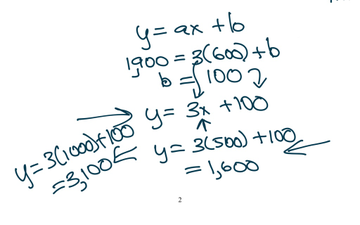 y = ax + b
1,900 = 3(600) + b
b = 100
y = 3x + 100
y = 3(500) + 100
= 1,600
y = 3(1000) + 100
= 3,100
2